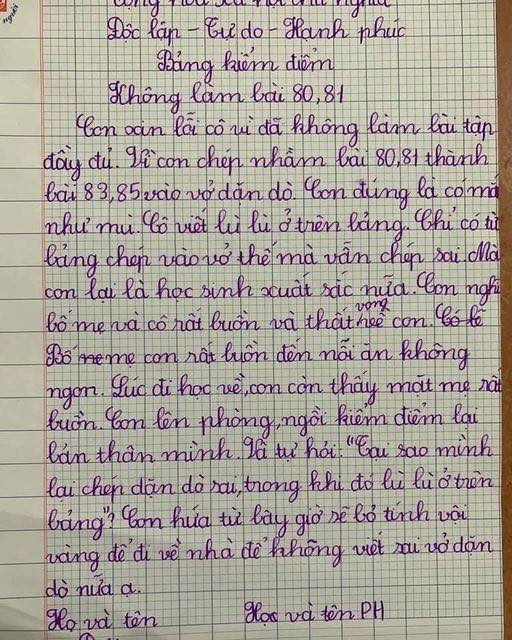 Cộng hoà xã hội chủ nghĩa
Độc lập - Tự do - Hạnh phúc
Bảng kiểm điểm
Không làm bài 80,81
Con xin lỗi cô vì đã không làm bài tập
đầy đủ. Vì con chép nhầm bài 80,81 thành
bài 83,85 vào vở dặn dò. Con đúng là có mắ
như mù. Cô viết lù lù ở trên bảng. Chỉ có từ
bảng chép vào vở thế mà vẫn chép sai. Mà
con lại là học sinh xuất sắc nữa. Con nghĩ
bố mẹ và cô rất buồn và thất vọng về con. Có lẽ
Bố mẹ con rất buồn đến nỗi ăn không
ngon. Lúc đi học về, con còn thấy mặt mẹ rất
buồn. Con lên phòng, ngồi kiểm điểm lại
bản thân mình. Và tự hỏi: "Tại sao mình
lại chép dặn dò sai, trong khi đó lù lù ở trên
bảng"? Con hứa từ bây giờ sẽ bỏ tính vội
vàng để đi về nhà để không viết sai vở dặn
dò nữa ạ.
Họ và tên Học và tên PH